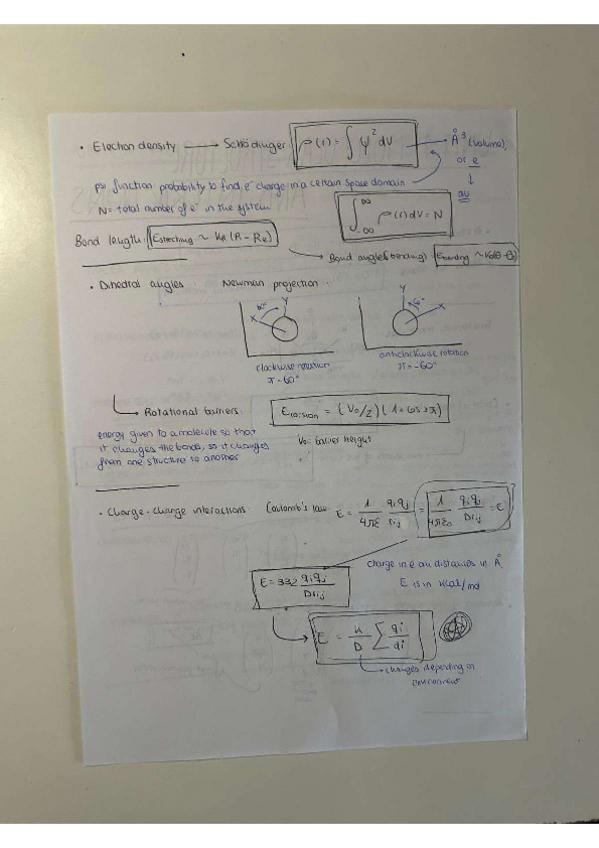 • Electron density → Schödinger ρ(r) = ∫ψ²dV → Å³ (volume),
or e
↓
au
psi function probability to find e⁻ charge in a certain space domain
N = total number of e⁻ in the system
∫-∞^∞ ρ(r)dV = N
Bond length: Estretching ~ KR(R - Re)
→ Bond angles (bending): Ebending ~ Kθ(θ-θe)
• Dihedral angles Newman projection:
Y Y
X 60° -60° X
clockwise rotation anticlockwise rotation
π = 60° π = -60°
→ Rotational barriers: Etorsion = (V0/2)(1 + cos 3π)
energy given to a molecule so that
it changes the bonds, so it changes
from one structure to another
V0 = barrier height
• Charge-charge interactions: Coulomb's law E = 1/4πε qiqj/rij = 1/4πε0 qiqj/Drij = E
E = 332 qiqj/Drij
charge in e au distances in Å
E is in kcal/mol
E = K/D Σ qi/di
→ changes depending on
environment